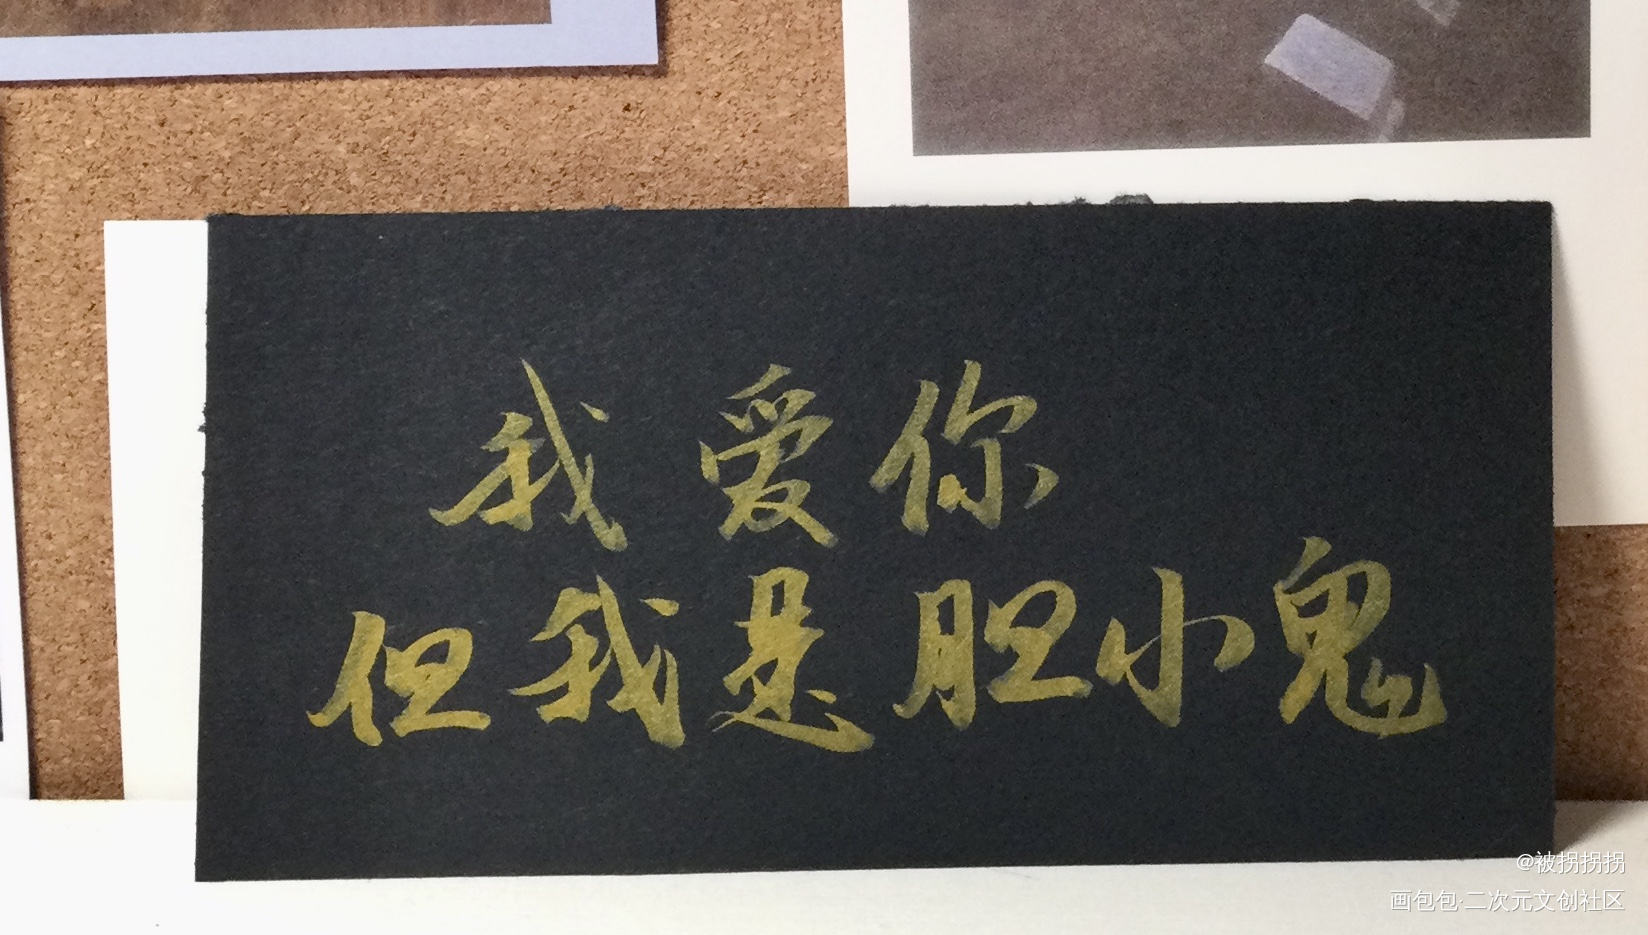 我爱你
但我是胆小鬼
@被拐拐拐
画包包·二次元文创社区